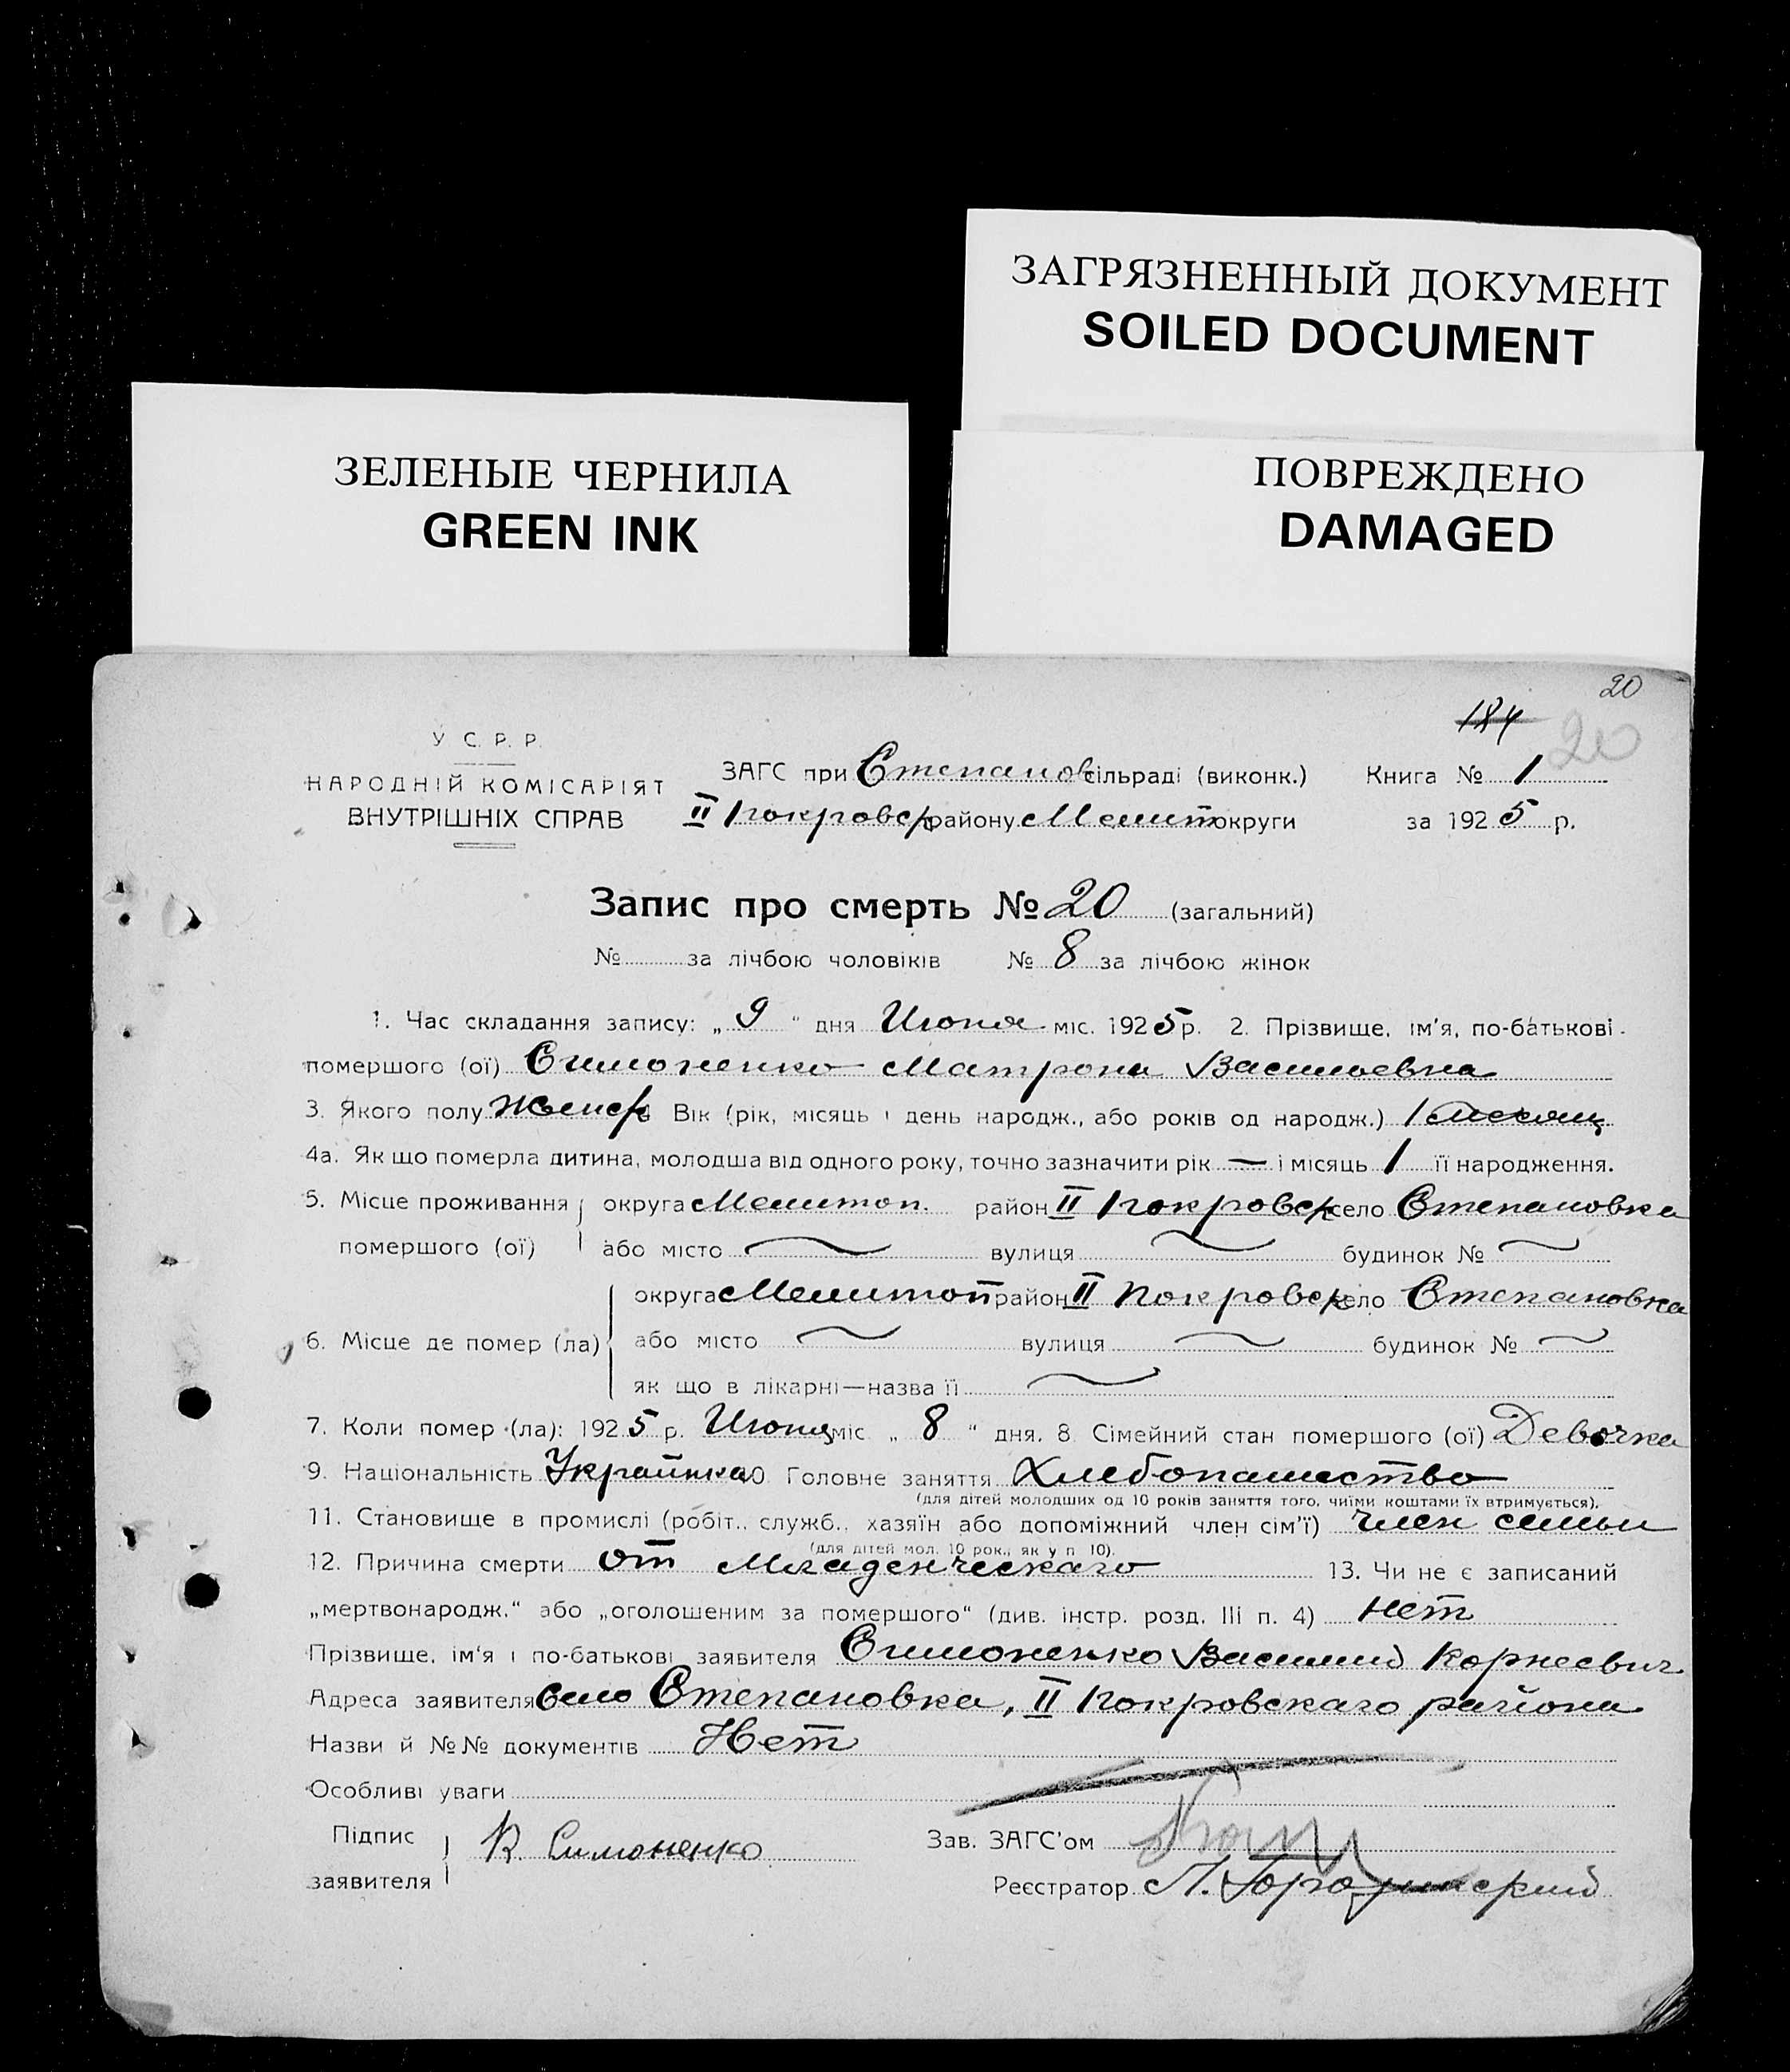 ЗАГРЯЗНЕННЫЙ ДОКУМЕНТ
SOILED DOCUMENT
ЗЕЛЕНЫЕ ЧЕРНИЛА
GREEN INK
ПОВРЕЖДЕНО
DAMAGED
20
184
20
У С. Р. Р.
НАРОДНІЙ КОМІСАРІЯТ
ВНУТРІШНІХ СПРАВ
ЗАГС при Степанов сільраді (виконк.) Книга № 1
II Покровск району Мелит округи за 1925 р.
Запис про смерть № 20 (загальний)
№ за лічбою чоловіків № 8 за лічбою жінок
1. Час складання запису: „ 9 " дня Июня міс. 1925 р. 2. Прізвище, ім'я, по-батькові
помершого (ої) Симоненко Матрона Васильевна
3. Якого полу Женск Вік (рік, місяць і день народж., або років од народж.) 1 месяц
4а. Як що померла дитина, молодша від одного року, точно зазначити рік — і місяць 1 її народження.
5. Місце проживання округа Мелитоп. район II Покровск село Степановка
помершого (ої) або місто вулиця будинок №
округа Мелитоп район II Покровск село Степановка
6. Місце де помер (ла) або місто вулиця будинок №
як що в лікарні—назва її
7. Коли помер (ла): 1925 р. Июня міс „ 8 " дня. 8. Сімейний стан помершого (ої) Девочка
9. Національність Украинка 10 Головне заняття Хлебопашество
(для дітей молодших од 10 років заняття того, чиїми коштами їх втримується).
11. Становище в промислі (робіт., служб., хазяїн або допоміжний член сім'ї) член семьи
(для дітей мол. 10 рок., як у п 10).
12. Причина смерти от Младенческаго 13. Чи не є записаний
„мертвонародж." або „оголошеним за помершого" (див. інстр. розд. III п. 4) нет
Прізвище, ім'я і по-батькові заявителя Симоненко Василий Корнеевич
Адреса заявителя село Степановка, II Покровскаго района
Назви й №№ документів Нет
Особливі уваги
Підпис
заявителя
В. Симоненко
Зав. ЗАГС'ом
Реєстратор